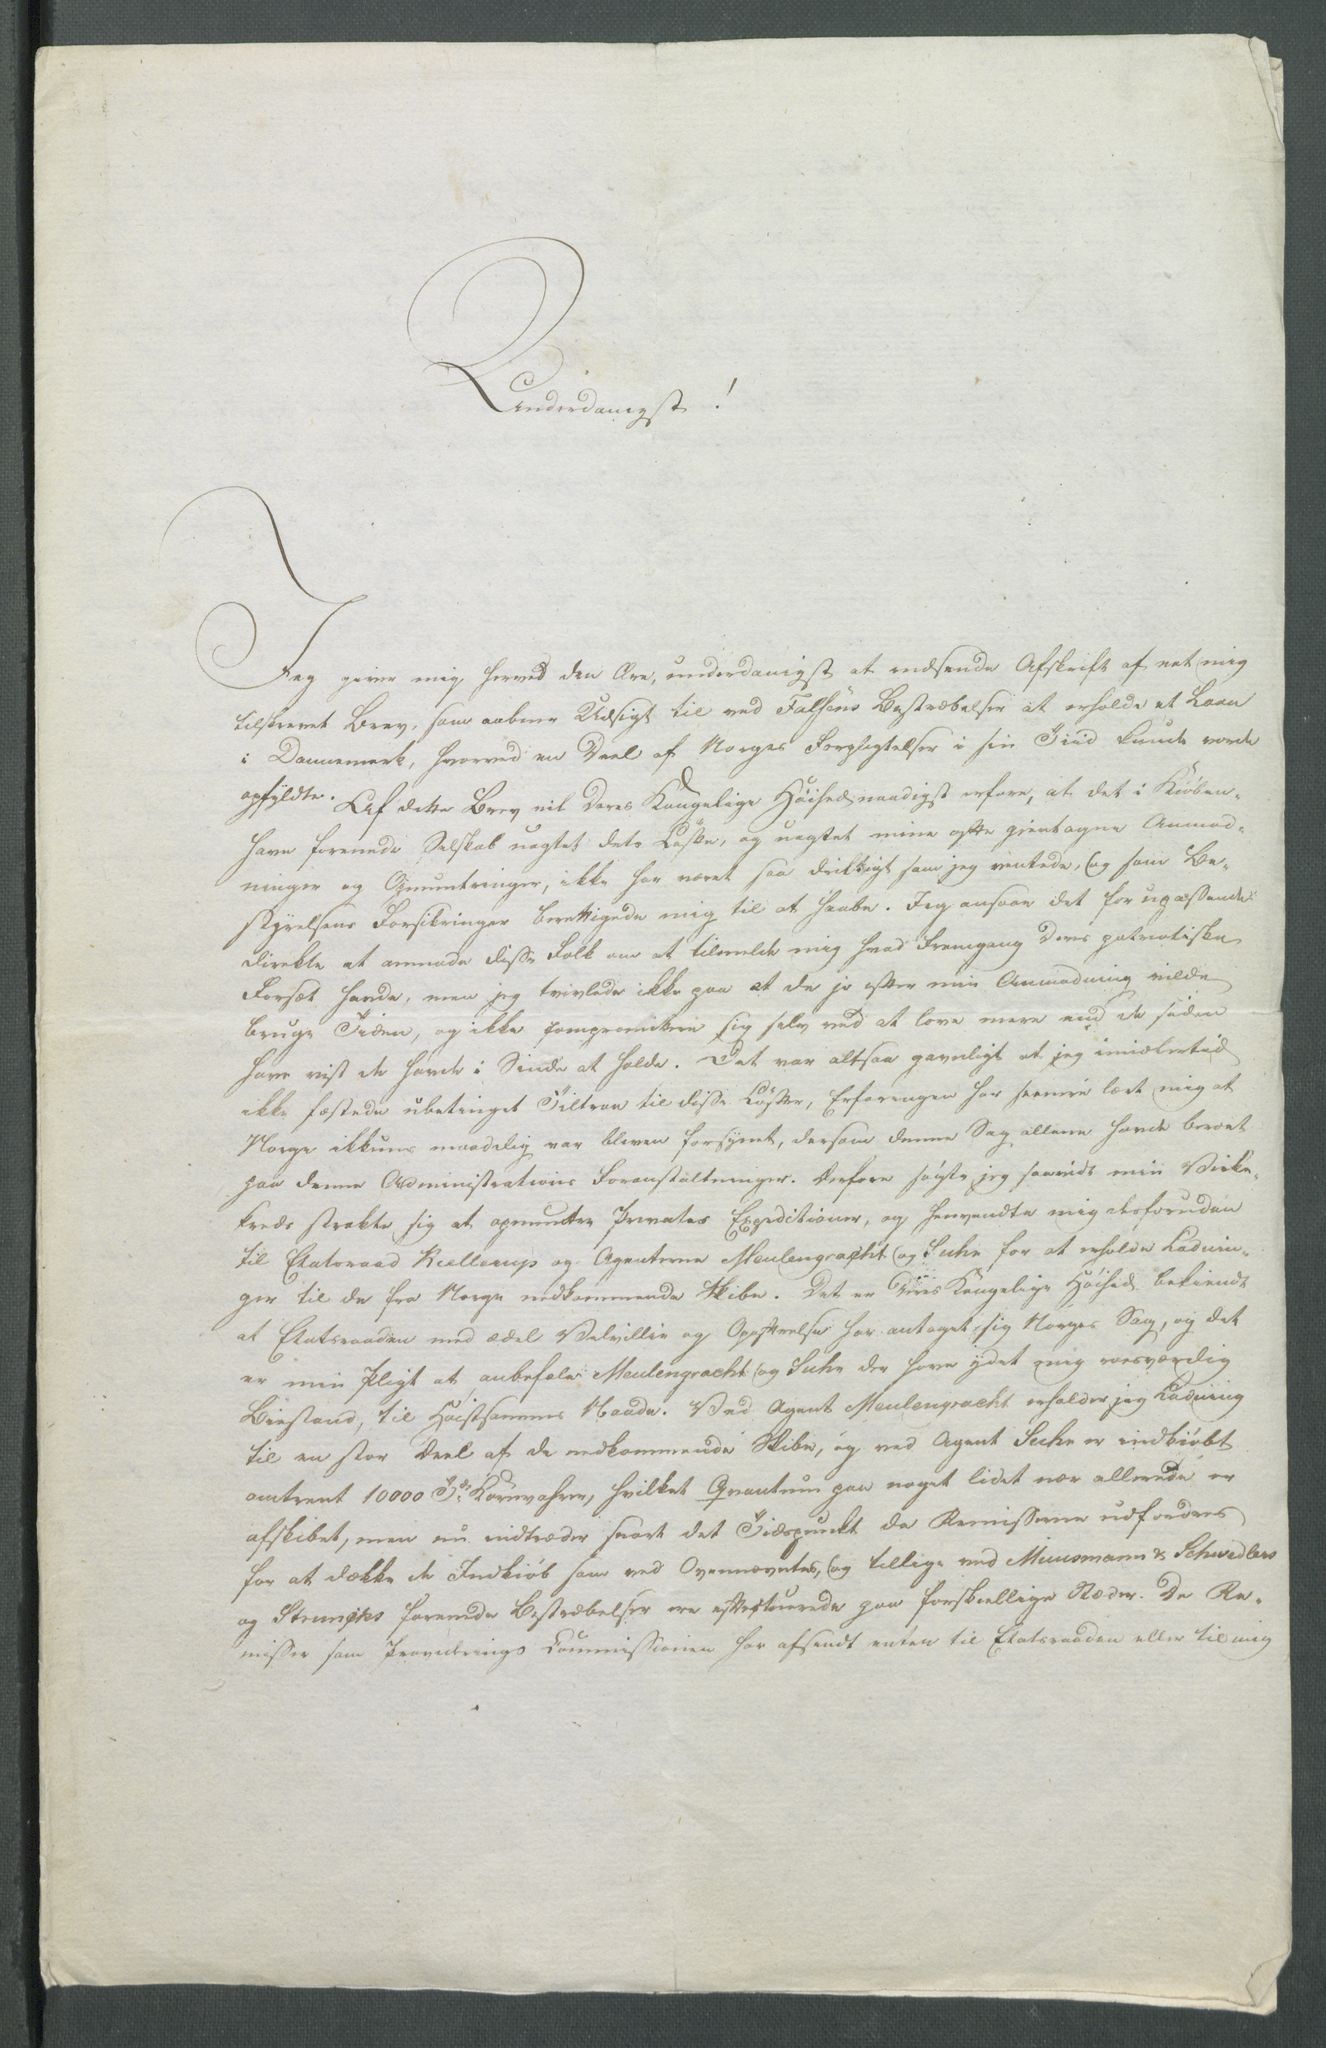 Underdanigst!
Jeg giver mig herved den Ære, underdanigst at indsende Afskrift af eet mig
tilskrevet Brev, som aabner Udsigt til ved Falsens Bestræbelser at erholde et Laan
i Dannemark, hvorved en Deel af Norges Forpligtelser i sin Tiid kunde vorde
opfyldte. Af dette Brev vil Deres Kongelige Höihed naadigst erfare, at det i Kiöben-
havn forenede Selskab uagtet dets Löfte, og uagtet mine ofte gientagne Anmod-
ninger og Opmuntringer, ikke har været saa driftigt som jeg ventede, og som Be-
styrelsens Forsikringer berettigede mig til at haabe. Jeg ansaae det for upassende
directe at anmode disse Folk om at tilmelde mig hvad Fremgang deres patriotiske
Forsæt havde, men jeg tvivlede ikke paa at de jo efter min Anmodning vilde
bruge Tiden, og ikke compromittere sig selv ved at love mere end de siden
have vist de havde i Sinde at holde. Det var altsaa gavnligt at jeg imidlertid
ikke fæstede ubetinget Tiltroe til disse Löfter, Erfaringen har lært mig at
Norge ikkuns maadelig var bleven forsynet, dersom denne Sag allene havde beroet
paa denne Administrations Foranstaltninger. Derfore søgte jeg saavidt min Virke-
kreds strakte sig at opmuntre Privates Expeditioner, og henvendte mig desforuden
til Etatsraad Kiellerup og Agenterne Meulengracht og Suhr for at erholde Ladnin-
ger til de fra Norge nedkommende Skibe. Det er Deres Kongelige Höihed bekiendt
at Etatsraaden med ædel Velvillie og Opoffrelse har antaget sig Norges Sag, og det
er min Pligt at anbefale Meulengracht og Suhr der have ydet mig roesværdig
Biestand, til Höistsammes Naade. Ved Agent Meulengracht erholder jeg Ladning
til en stor Deel af de nedkommende Skibe, og ved Agent Suhr er indkiøbt
omtrent 10000 Tdr Kornvahre, hvilket Qvantum paa noget lidet nær allerede er
afskibet, men nu indtræder snart det Tidspunkt da Remisserne udfordres
for at dække de Indkiøb som ved Ovennævnte, og tillige ved Muusmann & Schwedlers
og Strunchs forenede Bestræbelser ere effectuerede paa forskiellige Stæder. De Re-
misser som Provideringscommissionen har afsendt enten til Etatsraaden eller til mig